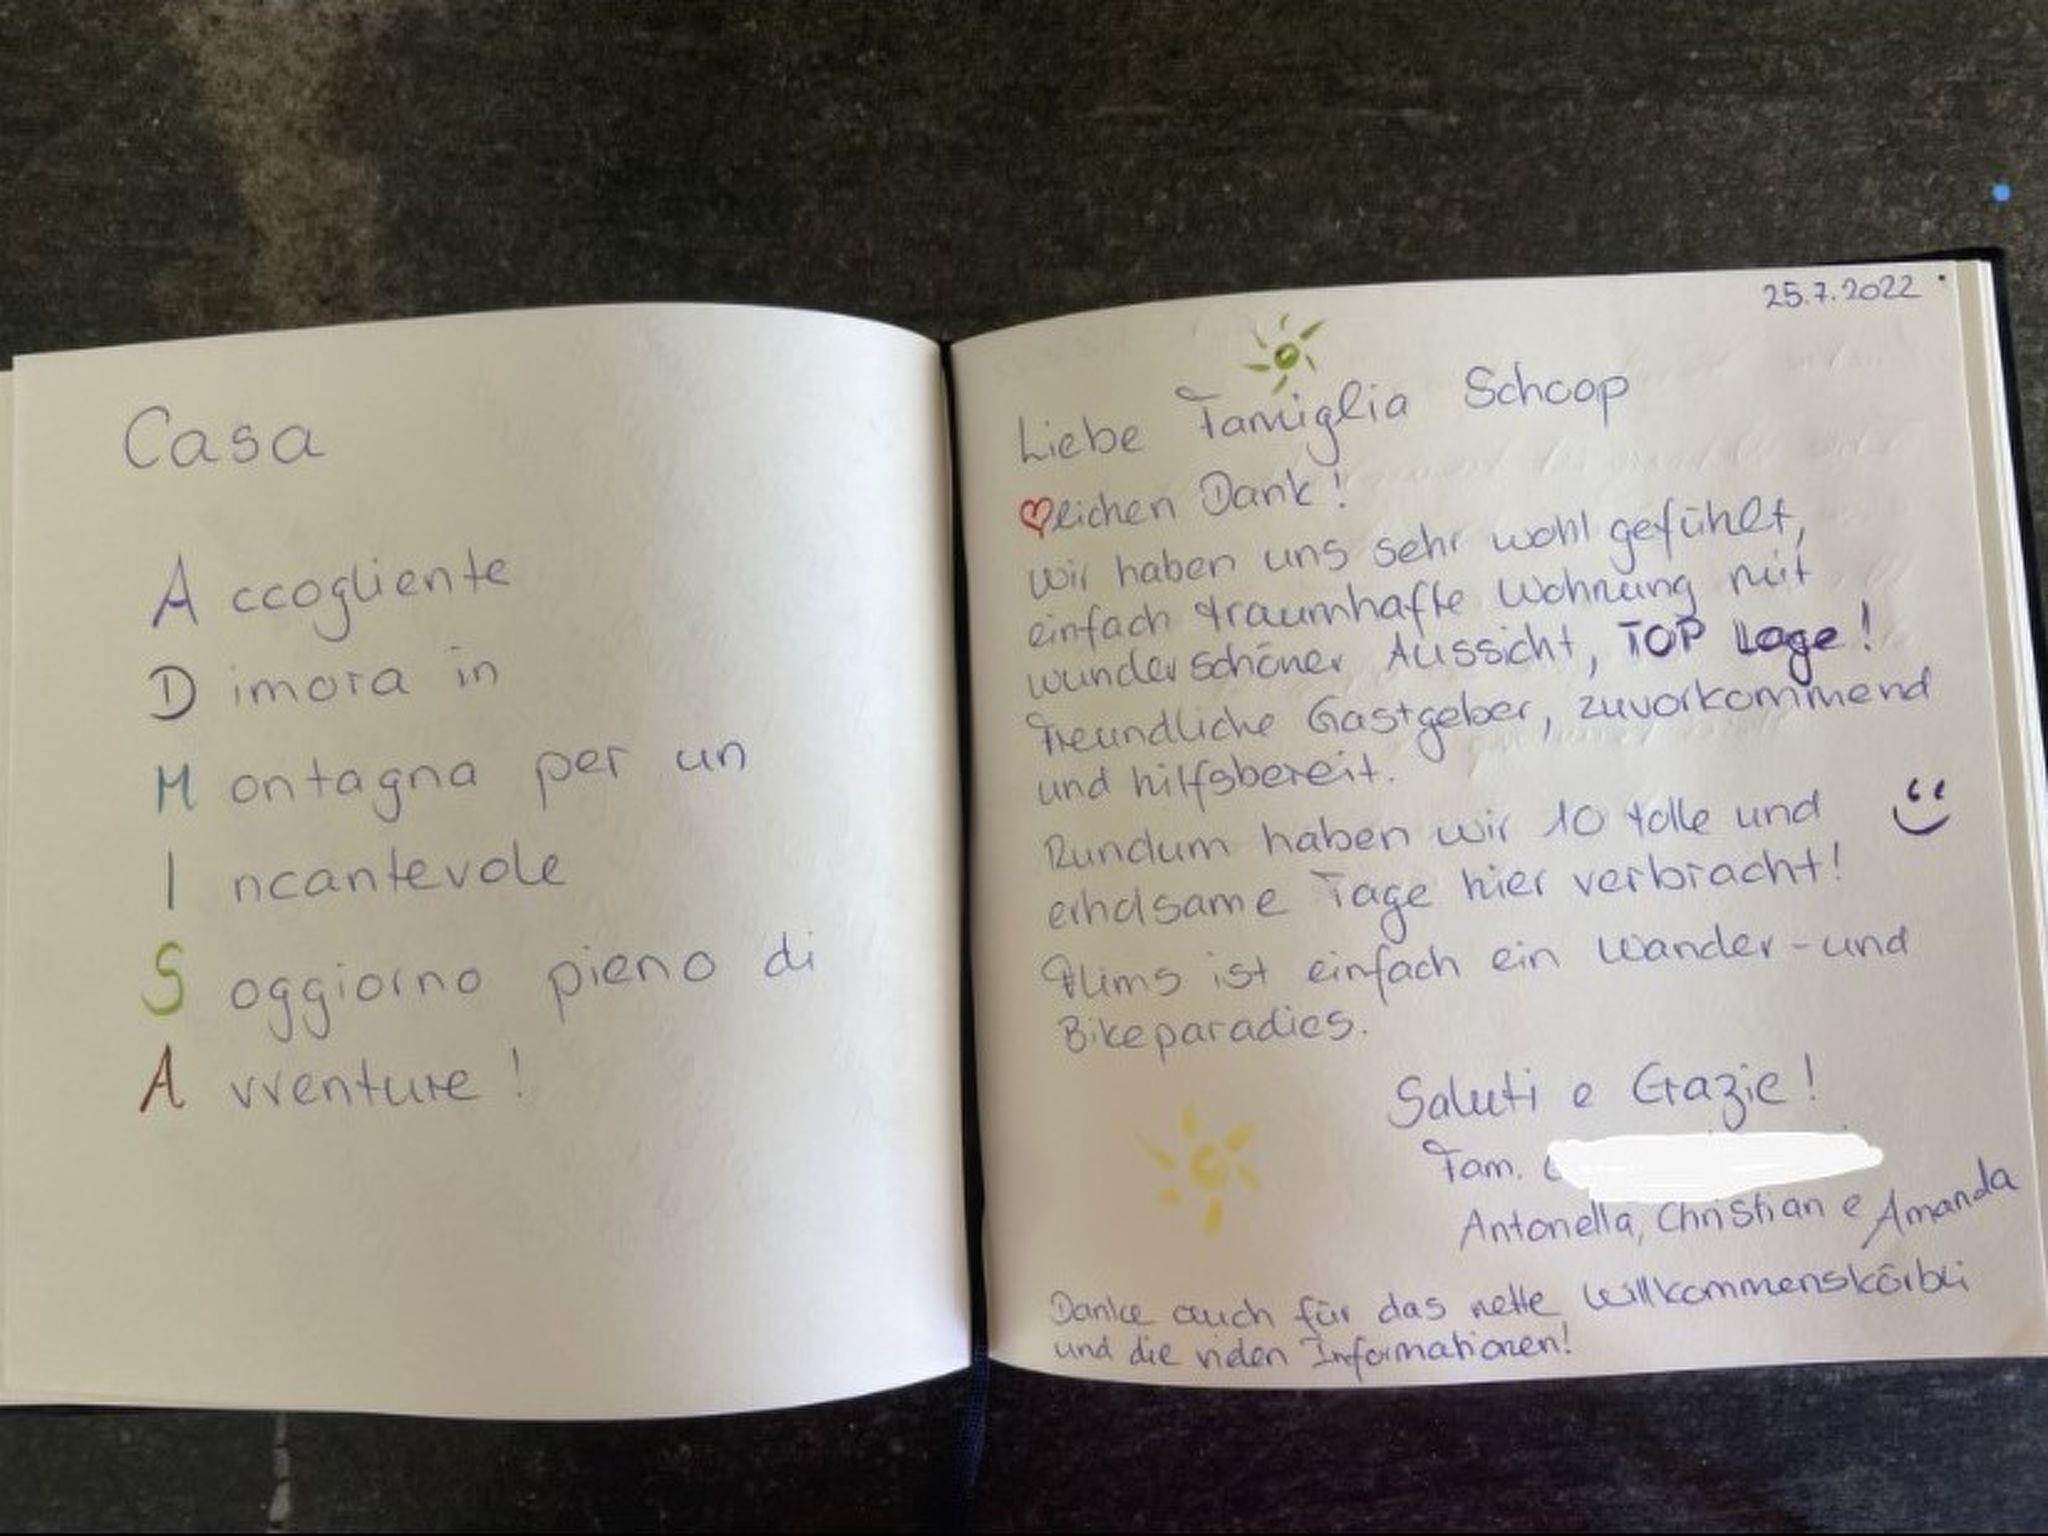 Casa
Accogliente
Dimora in
Montagna per un
Incantevole
Soggiorno pieno di
Avventure!
25.7.2022
Liebe Famiglia Schoop
♡lichen Dank!
Wir haben uns sehr wohl gefühlt,
einfach traumhafte Wohnung mit
wunderschöner Aussicht, TOP Lage!
Freundliche Gastgeber, zuvorkommend
und hilfsbereit.
Rundum haben wir 10 tolle und
erholsame Tage hier verbracht!
Flims ist einfach ein Wander-und
Bikeparadies.
Saluti e Grazie!
Fam.
Antonella, Christian e Amanda
Danke auch für das nette Willkommenskörbli
und die vielen Informationen!